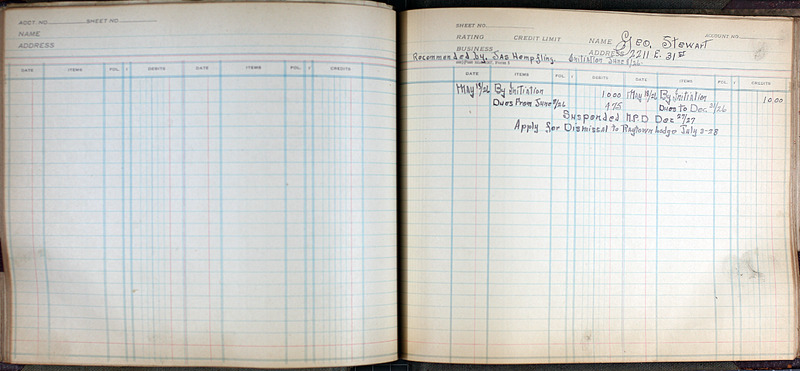 ACCT. NO. SHEET NO.
NAME
ADDRESS
DATE ITEMS FOL. √ DEBITS DATE ITEMS FOL. √ CREDITS
SHEET NO. ACCOUNT NO.
RATING CREDIT LIMIT NAME Geo. Stewart
BUSINESS ADDRESS 2211 E. 31st
Recommended by. Jas Hempfling. Initiation June 8/26.
DATE ITEMS FOL. √ DEBITS DATE ITEMS FOL. √ CREDITS
May 19/26 By Initiation 10 00 May 19/26 By Initiation 10 00
Dues From June 8/26 4 75 Dues to Dec 31/26
Suspended N.P.D Dec 27/27
Apply for Dismissal to Raytown Lodge July 2-28